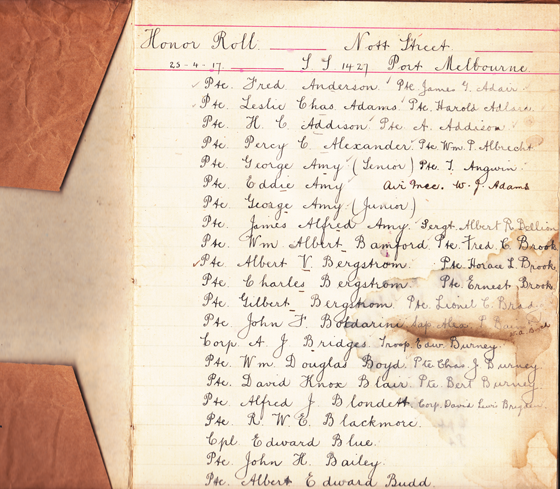 Honor Roll. Nott Street
25-4-17. S S 1427 Port Melbourne
Pte. Fred Anderson Pte James G. Adair
Pte. Leslie Chas. Adams Pte. Harold Adlard
Pte. H. C. Addison Pte A. Addison
Pte. Percy C. Alexander Pte Wm. P. Albrecht
Pte. George Amy (Senior) Pte. T. Angwin.
Pte. Eddie Amy Avi Mec. W. J. Adams
Pte. George Amy (Junior)
Pte. James Alfred Amy. Sergt. Albert R.
Pte. Wm Albert Bamford Pte. Fred C Brook
Pte. Albert V. Bergstrom. Pte. Horace L. Brook
Pte. Charles Bergstrom Pte. Ernest Brook.
Pte. Gilbert Bergstrom Pte. Lionel C.
Pte. John F. Alex.
Corp. A. J. Bridges Troop. Edw. Burney.
Pte. Wm Douglas Boyd. Pte Chas J Burney
Pte. David Knox Blair Pte Bert Burney
Pte. Alfred J Blondett Corp. David Lewi
Pte. R. W. E. Blackmore.
Cpl. Edward Blue.
Pte. John H. Bailey.
Pte. Albert Edward Budd.